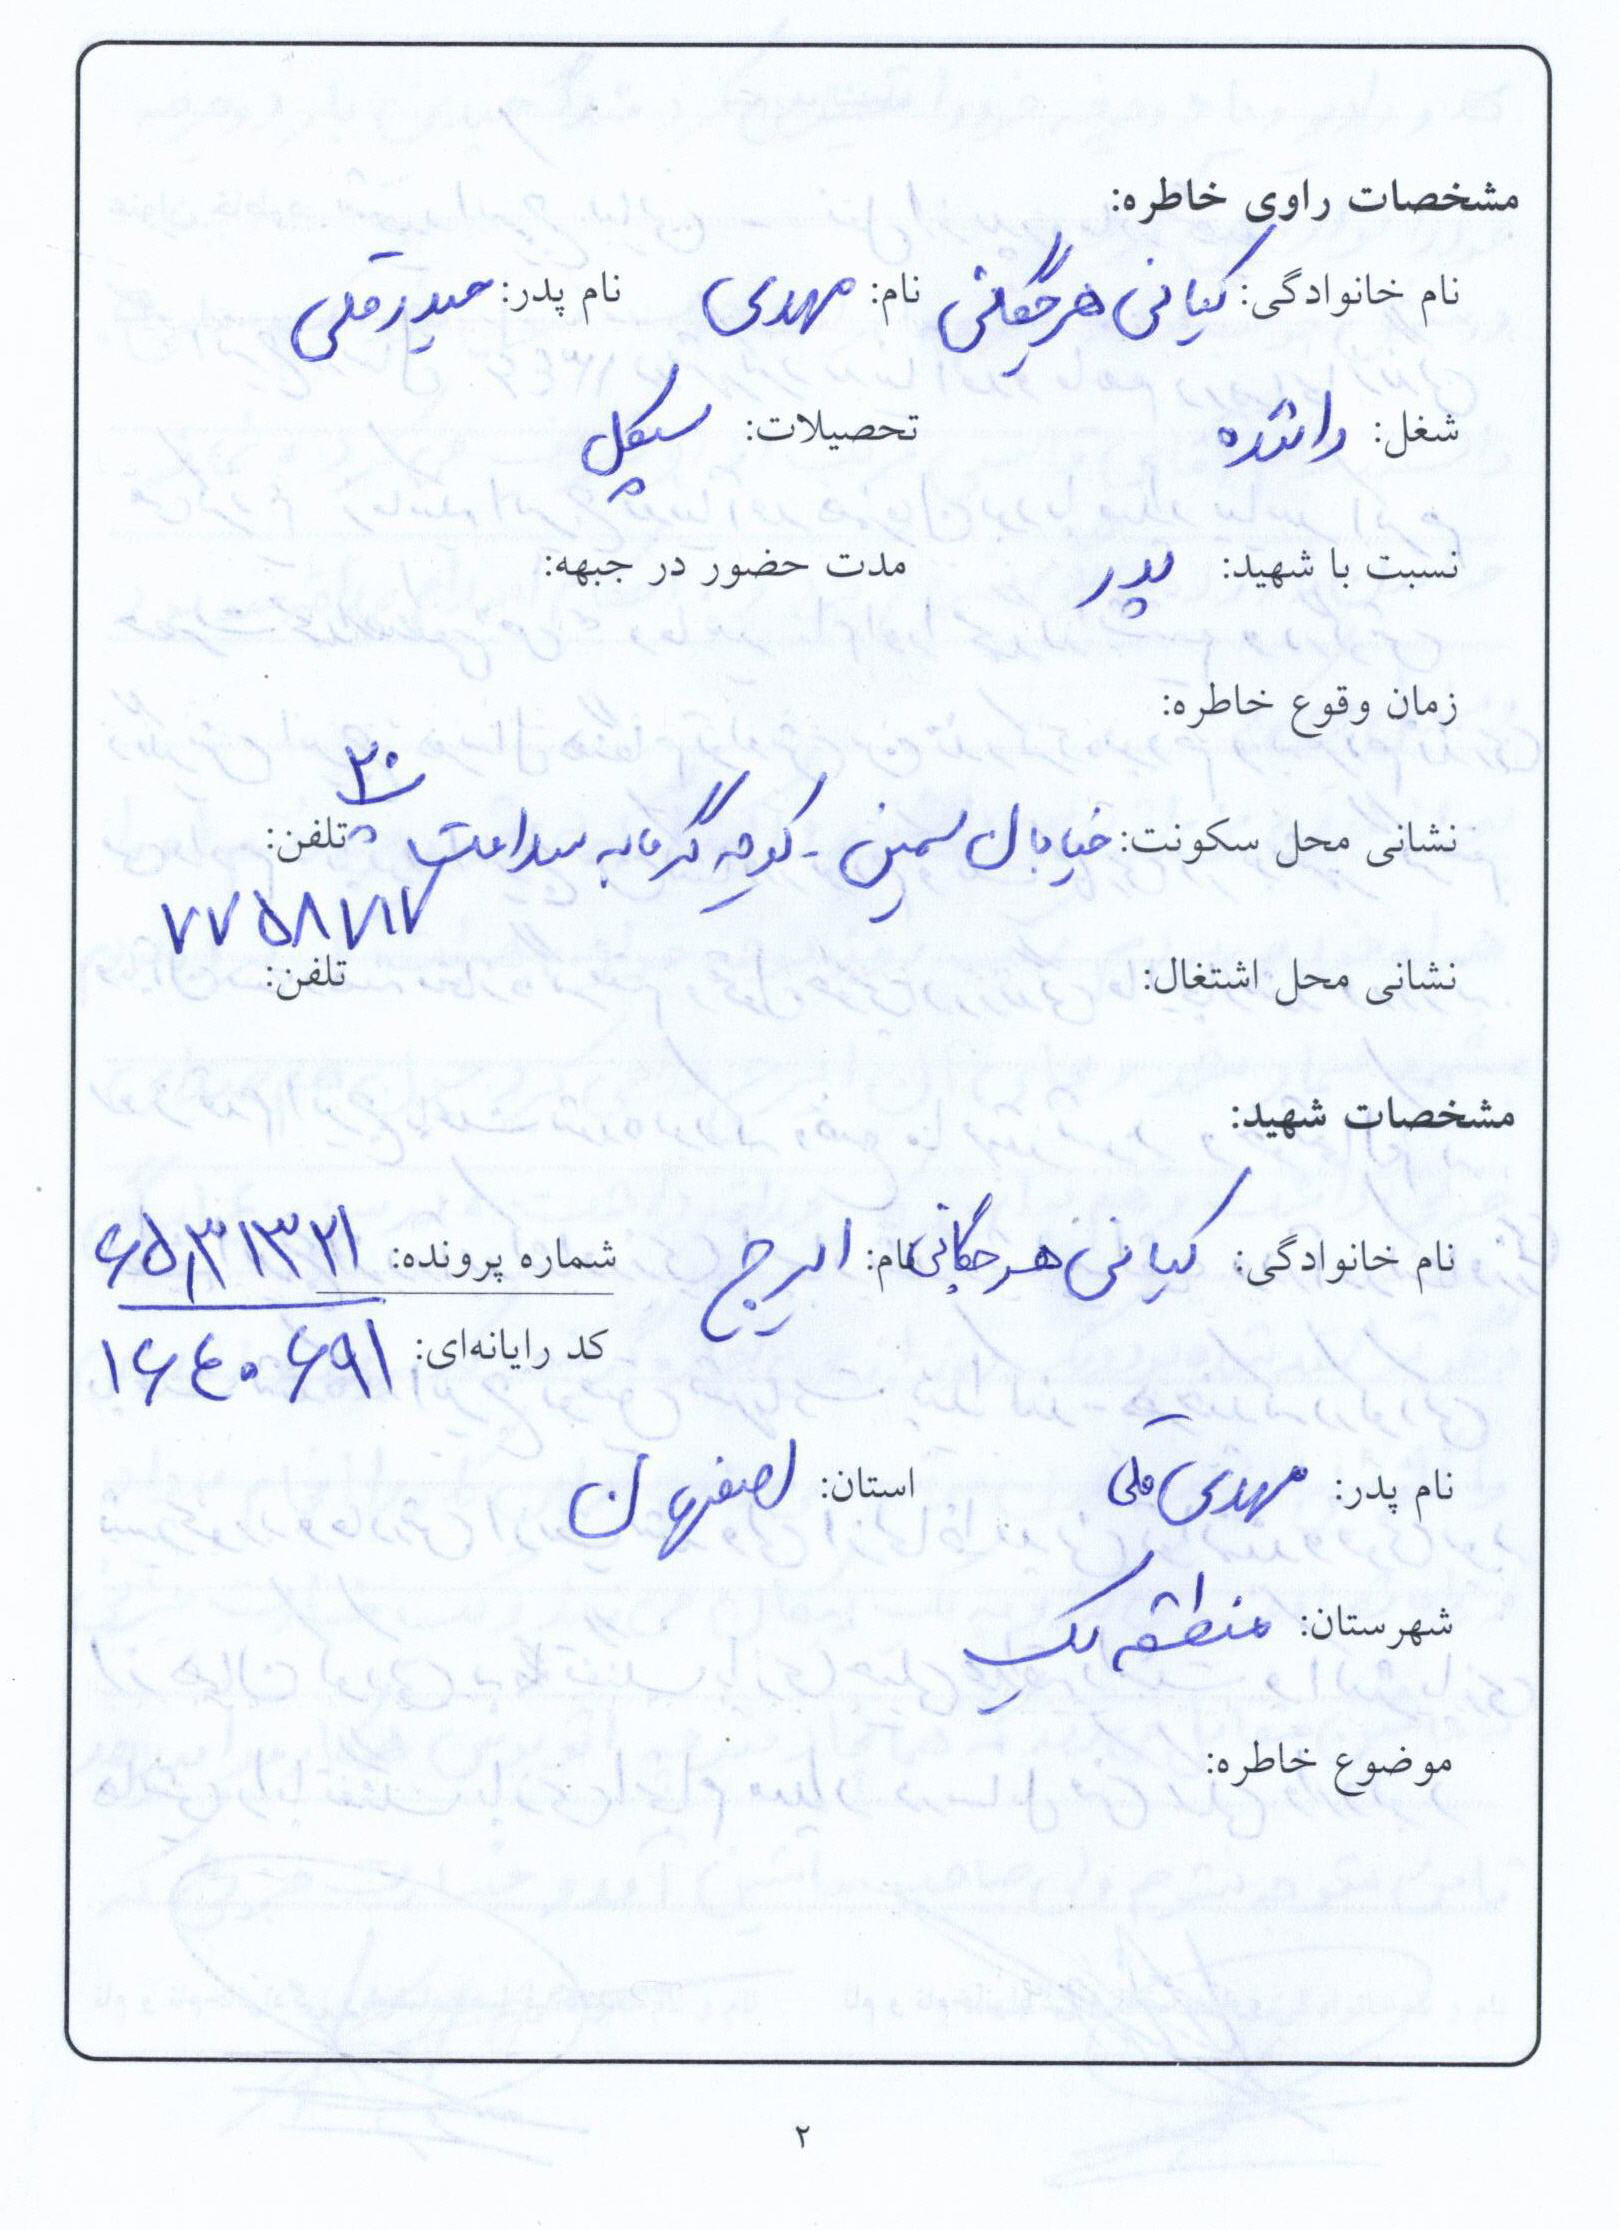 مشخصات راوی خاطره:
نام خانوادگی: کیانی هرچگانی نام: مهدی نام پدر: حیدرقلی
شغل: راننده تحصیلات: سیکل
نسبت با شهید: پدر مدت حضور در جبهه:
زمان وقوع خاطره:
نشانی محل سکونت: خیابان خمینی - کوچه گرمابه سلامت پ ۳۰ تلفن:
۷۷۵۸۷۱۷
نشانی محل اشتغال: تلفن:
مشخصات شهید:
نام خانوادگی: کیانی هرچگانی نام: ایرج شماره پرونده: ۶۵,۳۱۳۲۱
کد رایانه‌ای: ۱۶۴۰۶۹۱
نام پدر: مهدی قلی استان: اصفهان
شهرستان: منطقه یک
موضوع خاطره:
۲